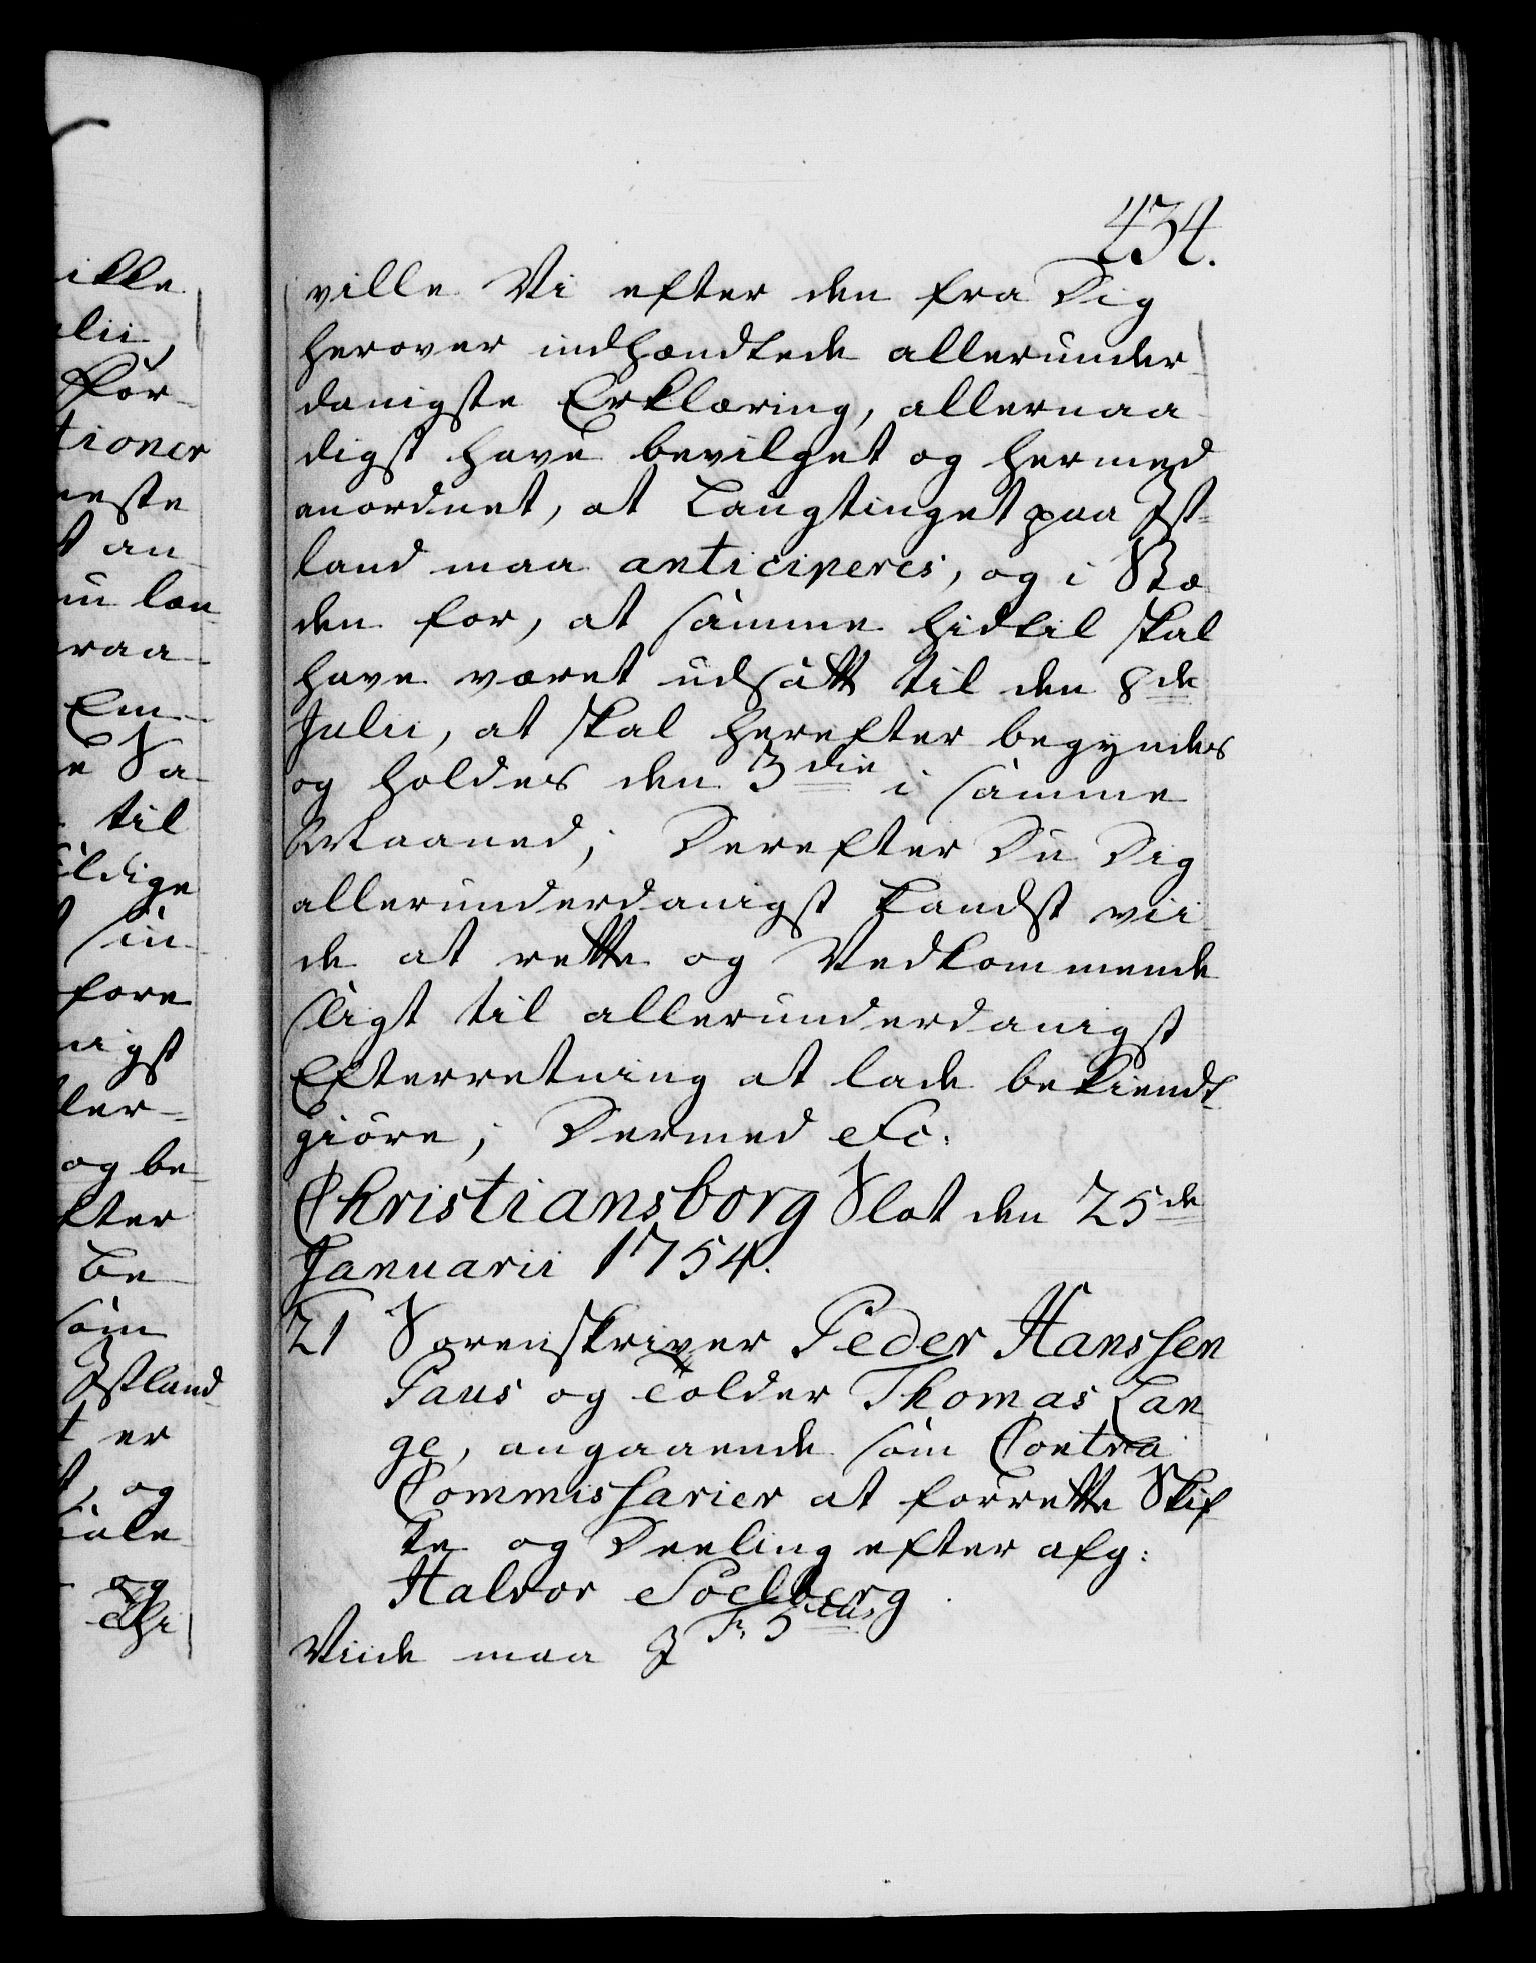 434.
ville Vi efter den fra Dig
herover indhændtede allerunder
danigste Erklæring, allernaa
digst have bevilget og hermed
anordnet, at Laugtinget paa Jst-
land maa anticiperes, og i Stæ
den for, at samme hidtil skal
have været udsatt til den 8de
Julii, at skal herefter begyndes
og holdes den 3die i samme
Maaned; Derefter Du Dig
allerunderdanigst kandst vii
de at rette og Vedkommende
sligt til allerunderdanigst
Efterretning at lade bekiendt
giöre; Dermed etc.
Christiansborg Slot den 25de
Januarii 1754.
21 Sorenskriver Peder Hanssen
Paus og Tolder Thomas Lan
ge, angaaende som Contra
Commissarier at forrette Skif
te og Deeling efter afg:
Halvor Soelberg
Viide maa J
ikke
ulii,
For-
tioner
neste
t an
lan
raa
Em
e Sa
til
ldige
sin
fore
nigst
ler-
og be
fter
Be
som
Jstland
t er
og
og